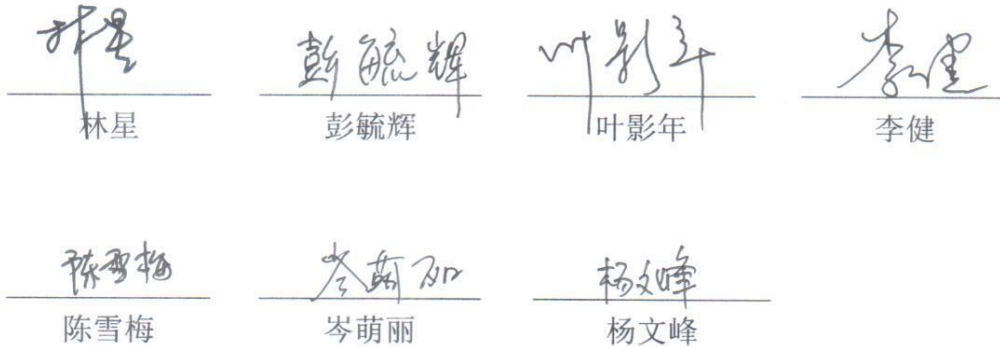 林星 彭毓辉 叶影年 李健
林星 彭毓辉 叶影年 李健
陈雪梅 岑萌丽 杨文峰
陈雪梅 岑萌丽 杨文峰